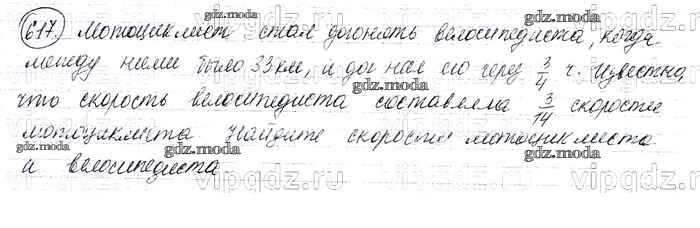 617. Мотоциклист стал догонять велосипедиста, когда
между ними было 33 км, и догнал его через 3/4 ч. Известно,
что скорость велосипедиста составляла 3/14 скорости
мотоциклиста Найдите скорости мотоциклиста
и велосипедиста
gdz.moda
gdz.moda
gdz.moda
gdz.moda
gdz.moda
gdz.moda
gdz.moda
gdz.moda
vipgdz.ru
vipgdz.ru
vipgdz.ru